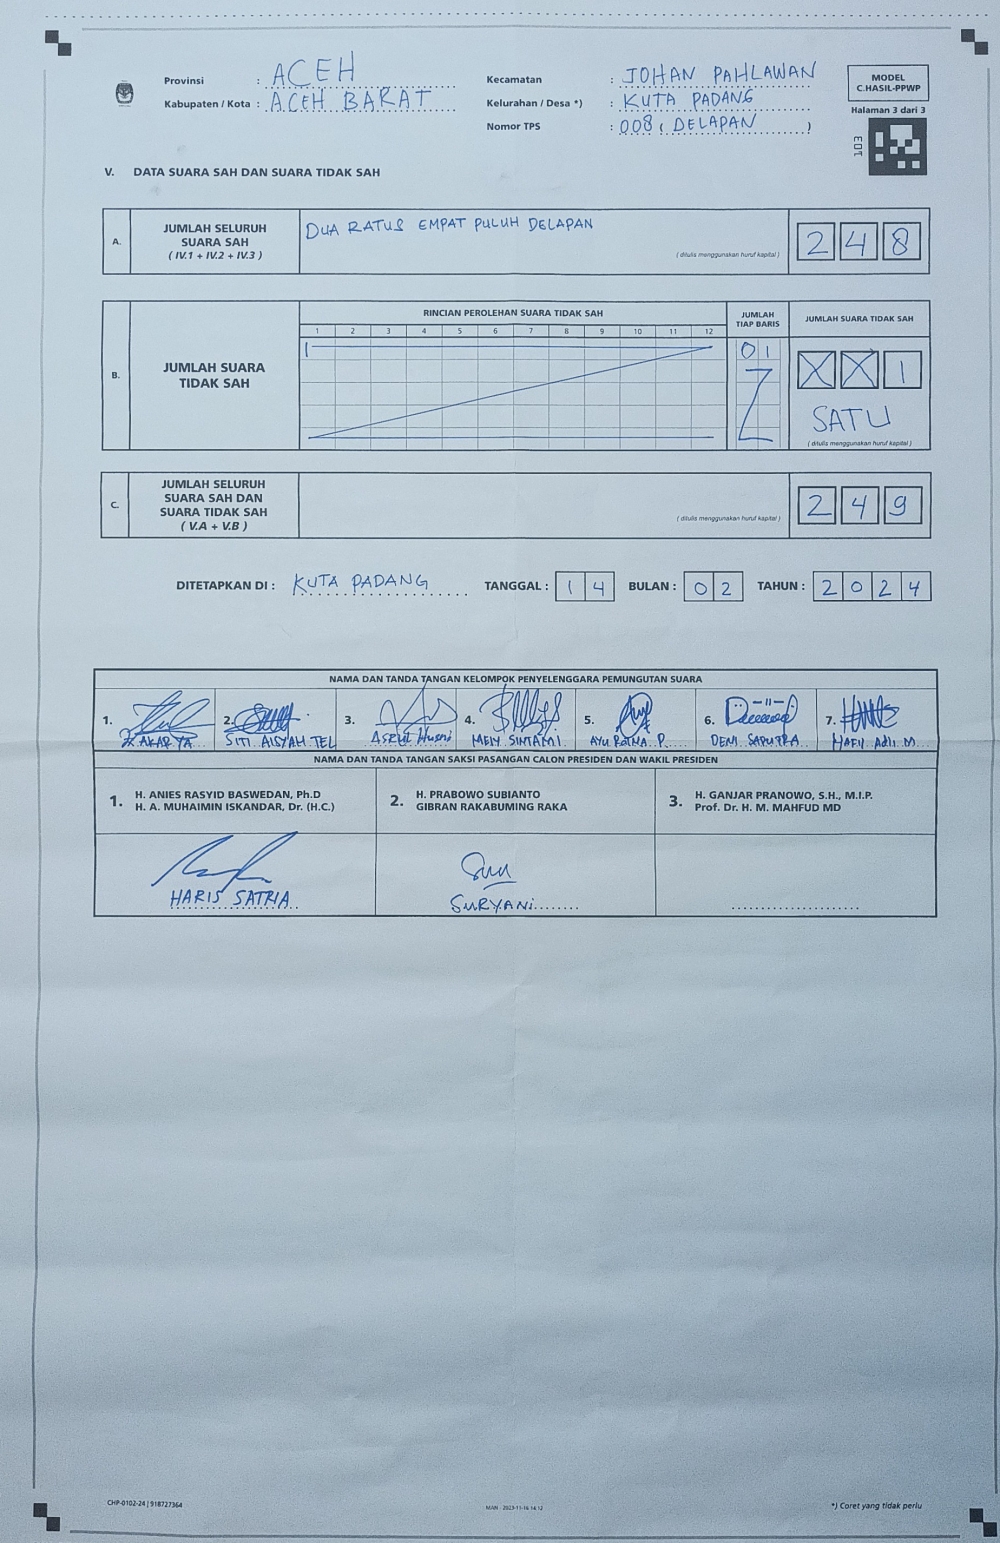 Provinsi : ACEH
Kabupaten / Kota : ACEH BARAT
Kecamatan : JOHAN PAHLAWAN
Kelurahan / Desa *) : KUTA PADANG
Nomor TPS : 008 ( DELAPAN )
MODEL
C.HASIL-PPWP
Halaman 3 dari 3
V. DATA SUARA SAH DAN SUARA TIDAK SAH
A. JUMLAH SELURUH
SUARA SAH
( IV.1 + IV.2 + IV.3 )
DUA RATUS EMPAT PULUH DELAPAN
( ditulis menggunakan huruf kapital )
2 4 8
B. JUMLAH SUARA
TIDAK SAH
RINCIAN PEROLEHAN SUARA TIDAK SAH
1 2 3 4 5 6 7 8 9 10 11 12
JUMLAH
TIAP BARIS
01
JUMLAH SUARA TIDAK SAH
X X 1
SATU
( ditulis menggunakan huruf kapital )
C. JUMLAH SELURUH
SUARA SAH DAN
SUARA TIDAK SAH
( V.A + V.B )
( ditulis menggunakan huruf kapital )
2 4 9
DITETAPKAN DI : KUTA PADANG TANGGAL : 1 4 BULAN : 0 2 TAHUN : 2 0 2 4
NAMA DAN TANDA TANGAN KELOMPOK PENYELENGGARA PEMUNGUTAN SUARA
1. 2. 3. 4. 5. 6. 7.
SITI AISYAH TEL
AYU RATNA P.
DENI SAPUTRA
NAMA DAN TANDA TANGAN SAKSI PASANGAN CALON PRESIDEN DAN WAKIL PRESIDEN
1. H. ANIES RASYID BASWEDAN, Ph.D
H. A. MUHAIMIN ISKANDAR, Dr. (H.C.)
2. H. PRABOWO SUBIANTO
GIBRAN RAKABUMING RAKA
3. H. GANJAR PRANOWO, S.H., M.I.P.
Prof. Dr. H. M. MAHFUD MD
HARIS SATRIA
SURYANi
CHP-0102-24 | 918727364
*) Coret yang tidak perlu